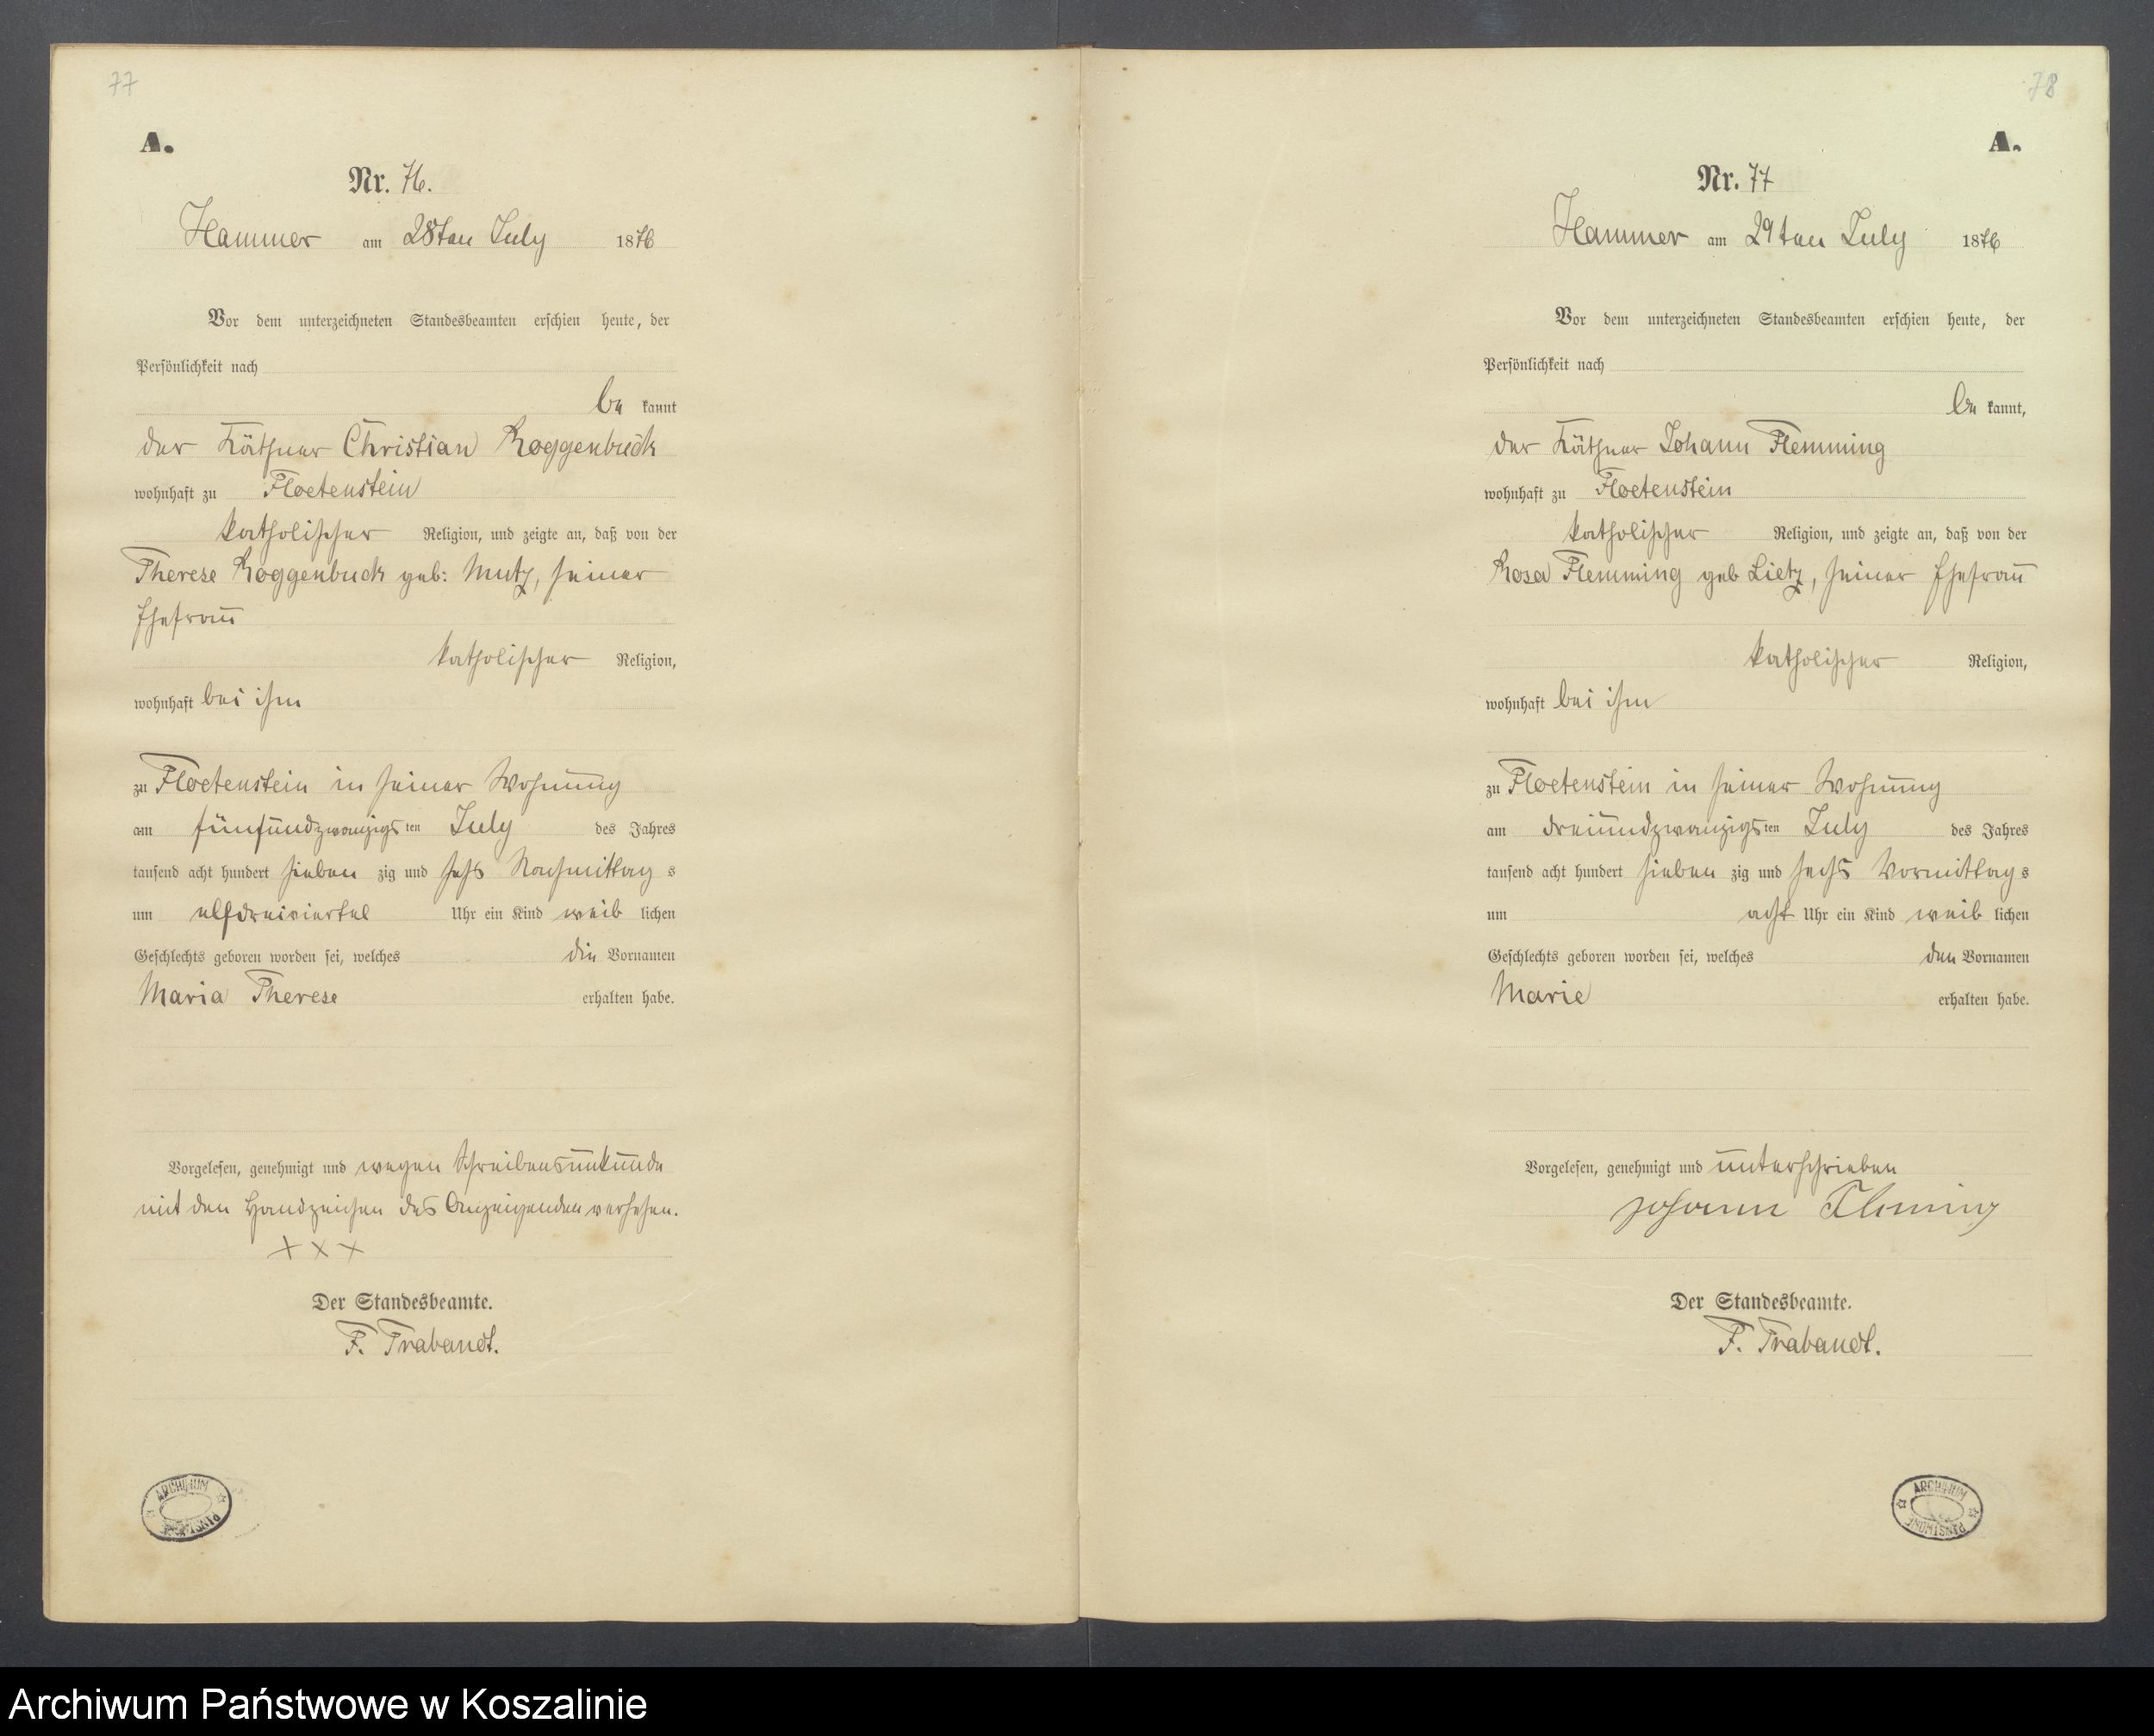 77
A.
Nr. 76.
Hammer am 28ten July 1876
Vor dem unterzeichneten Standesbeamten erschien heute, der
Persönlichkeit nach
be kannt
der Käthner Christian Roggenbuck
wohnhaft zu Floetenstein
katholischer Religion, und zeigte an, daß von der
Therese Roggenbuck geb: Mutz, seiner
Ehefrau
katholischer Religion,
wohnhaft bei ihm
zu Floetenstein in seiner Wohnung
am fünfundzwanzigsten July des Jahres
tausend acht hundert sieben zig und sechs Nachmittags
um elfdreiviertel Uhr ein Kind weib lichen
Geschlechts geboren worden sei, welches die Vornamen
Maria Therese erhalten habe.
Vorgelesen, genehmigt und wegen Schreibensunkunde
mit den Handzeichen des Anzeigenden versehen.
+ x +
Der Standesbeamte.
F. Trabandt.
ARCHIWUM PAŃSTWOWE
78
A.
Nr. 77
Hammer am 29ten July 1876
Vor dem unterzeichneten Standesbeamten erschien heute, der
Persönlichkeit nach
be kannt,
der Käthner Johann Flemming
wohnhaft zu Floetenstein
katholischer Religion, und zeigte an, daß von der
Rosa Flemming geb Lietz, seiner Ehefrau
katholischer Religion,
wohnhaft bei ihm
zu Floetenstein in seiner Wohnung
am dreiundzwanzigsten July des Jahres
tausend acht hundert sieben zig und sechs Vormittags
um acht Uhr ein Kind weib lichen
Geschlechts geboren worden sei, welches den Vornamen
Marie erhalten habe.
Vorgelesen, genehmigt und unterschrieben
Johann Fleming
Der Standesbeamte.
F. Trabandt.
ARCHIWUM PAŃSTWOWE
Archiwum Państwowe w Koszalinie